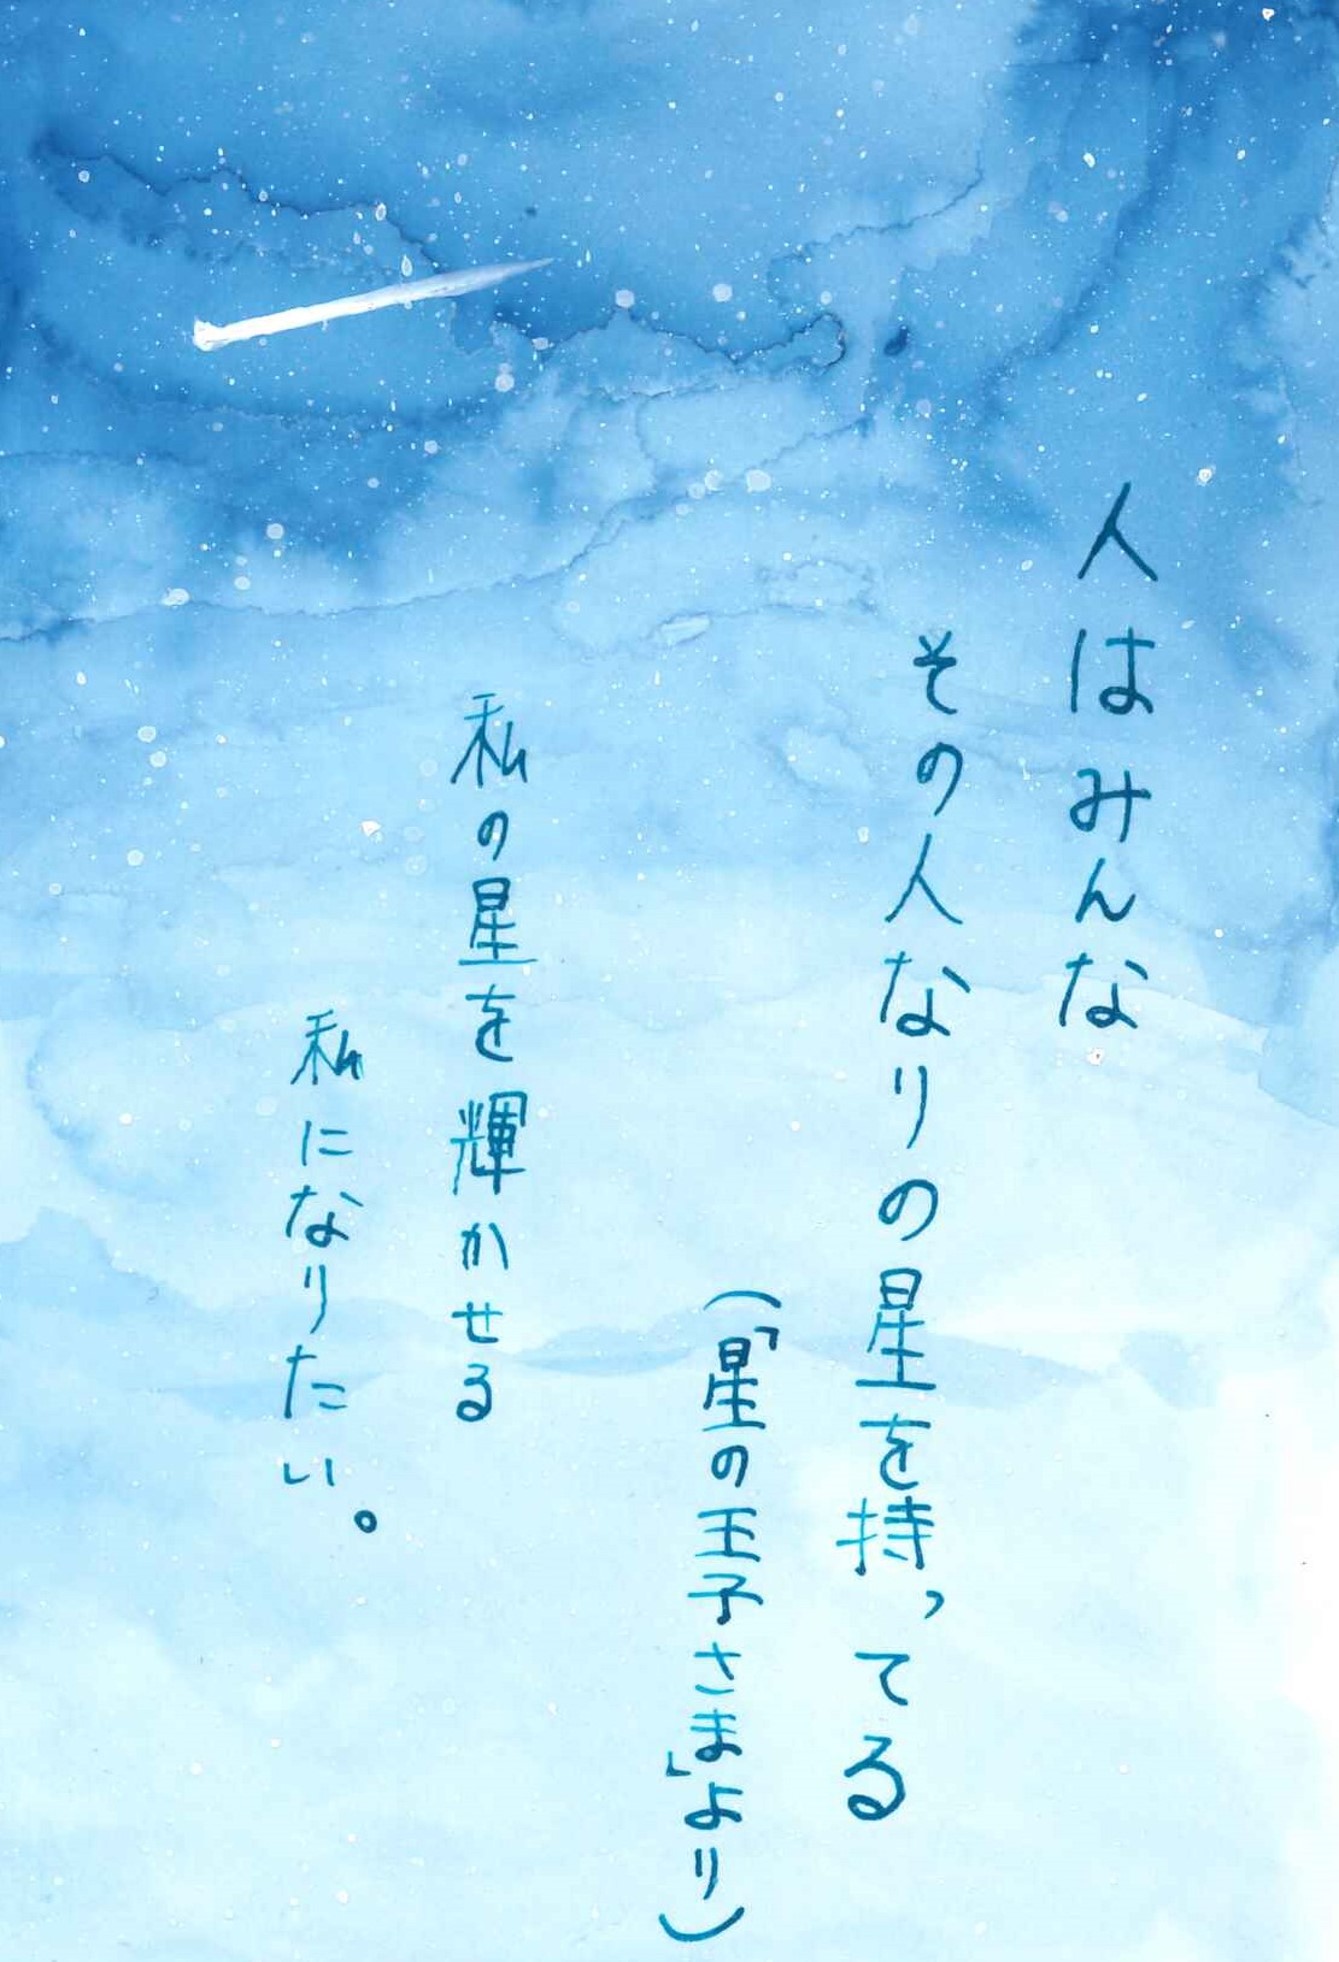 人はみんな
その人なりの星を持ってる
(「星の王子さま」より)
私の星を輝かせる
私になりたい。